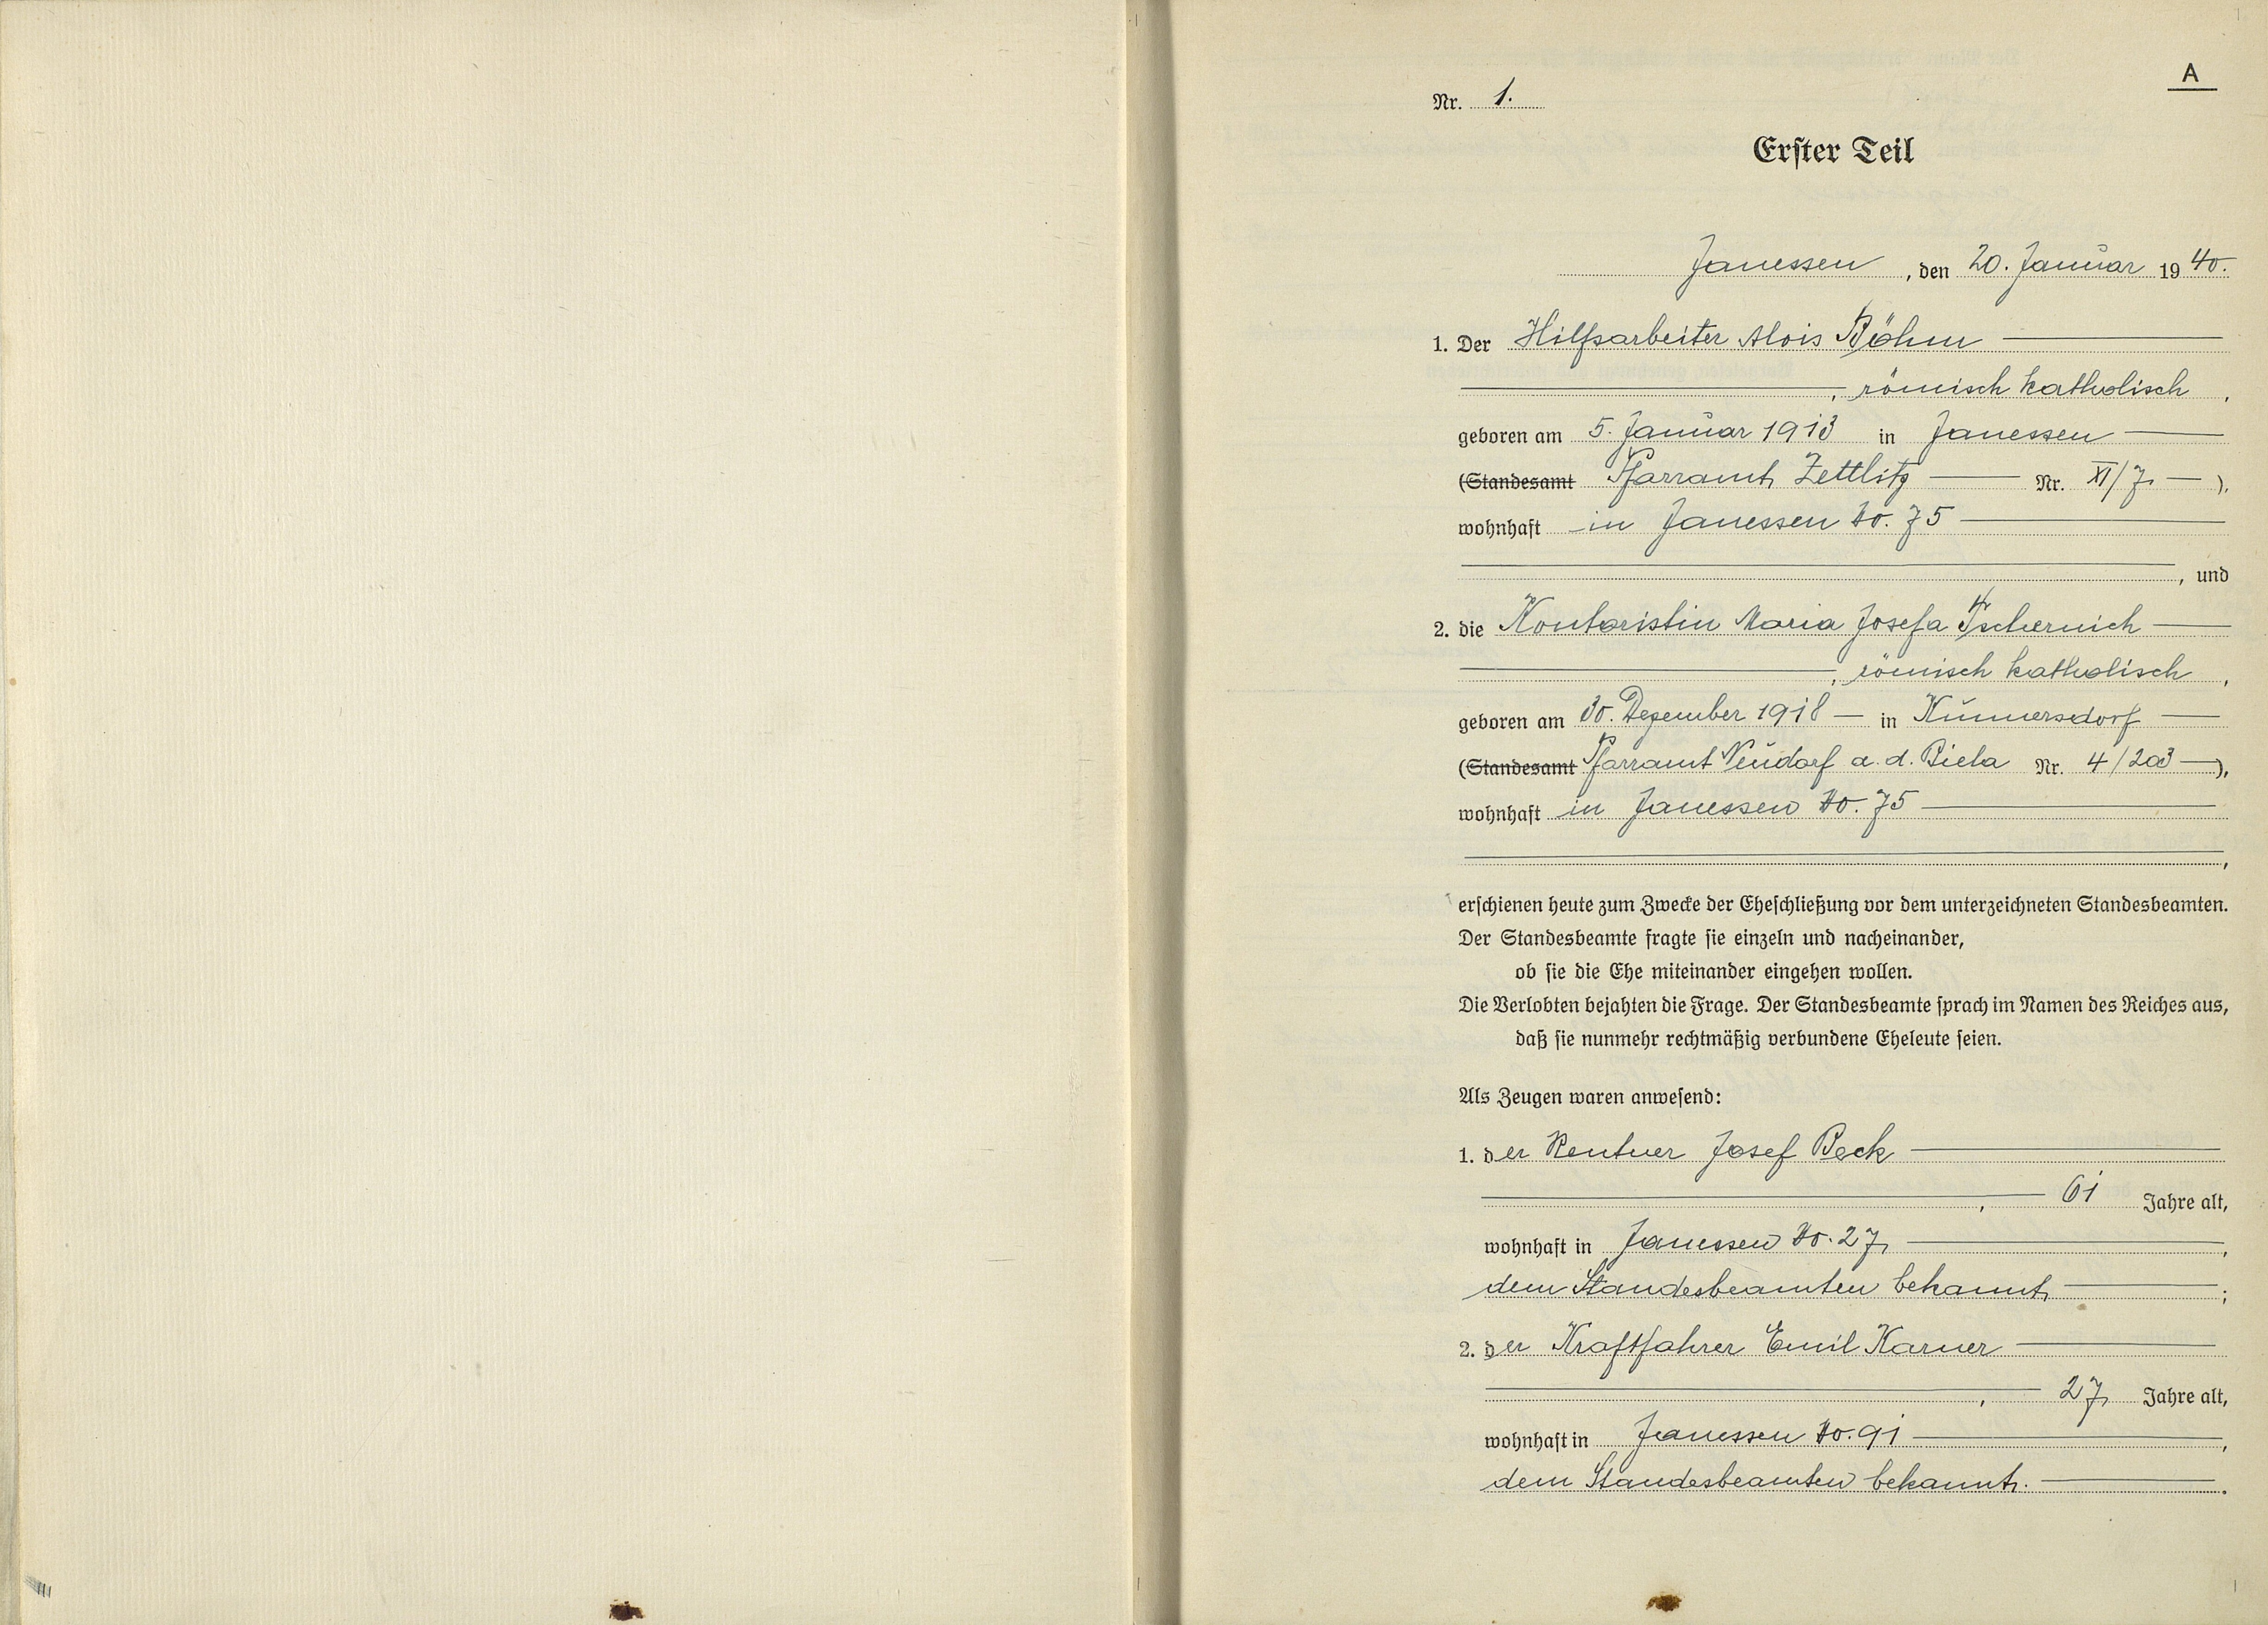 A
Nr. 1.
Erster Teil
Janessen, den 20. Januar 1940.
1. Der Hilfsarbeiter Alois Böhm
, römisch katholisch,
geboren am 5. Januar 1913 in Janessen
(Standesamt Pfarramt Zettlitz Nr. XI/7),
wohnhaft in Janessen No. 75
, und
2. die Kontoristin Maria Josefa Tschernich
, römisch katholisch,
geboren am 30. Dezember 1918 in Kümmersdorf
(Standesamt Pfarramt Neudorf a. d. Biela Nr. 4/203),
wohnhaft in Janessen No. 75
,
erschienen heute zum Zwecke der Eheschließung vor dem unterzeichneten Standesbeamten.
Der Standesbeamte fragte sie einzeln und nacheinander,
ob sie die Ehe miteinander eingehen wollen.
Die Verlobten bejahten die Frage. Der Standesbeamte sprach im Namen des Reiches aus,
daß sie nunmehr rechtmäßig verbundene Eheleute seien.
Als Zeugen waren anwesend:
1. der Rentner Josef Beck
, 61 Jahre alt,
wohnhaft in Janessen No. 27,
dem Standesbeamten bekannt;
2. der Kraftfahrer Emil Karner
, 27 Jahre alt,
wohnhaft in Janessen No. 91,
dem Standesbeamten bekannt.